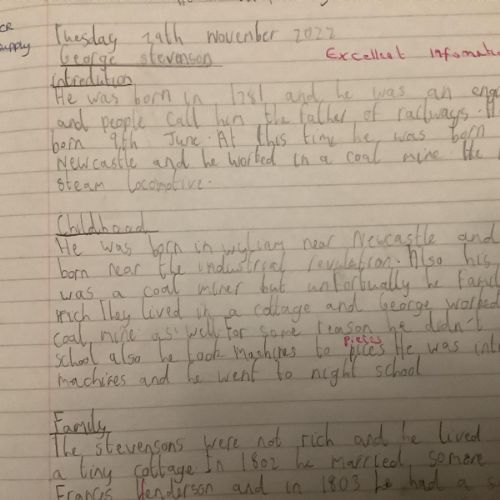 CR
Supply
Tuesday 29th November 2022
George Stevenson
Excellent Infomatio
introdution
He was born in 1781 and he was an eng
and people call him the father of railways. H
born 9th June. At this time he was born
Newcastle and he worked in a coal mine. He
steam locomotive.
Childhood
He was born in wylam near Newcastle and
born near the industrial revulation. Also his
was a coal miner but unfortually he family
rich. They lived in a cottage and George worked
coal mine as well. For some reason he didn't
school also he took machines to
pieces
He was inte
machines and he went to night school
Family
The stevensons were not rich and he lived
a tiny cottage. In 1802 he married someone
Francis Henderson and in 1803 he had a s